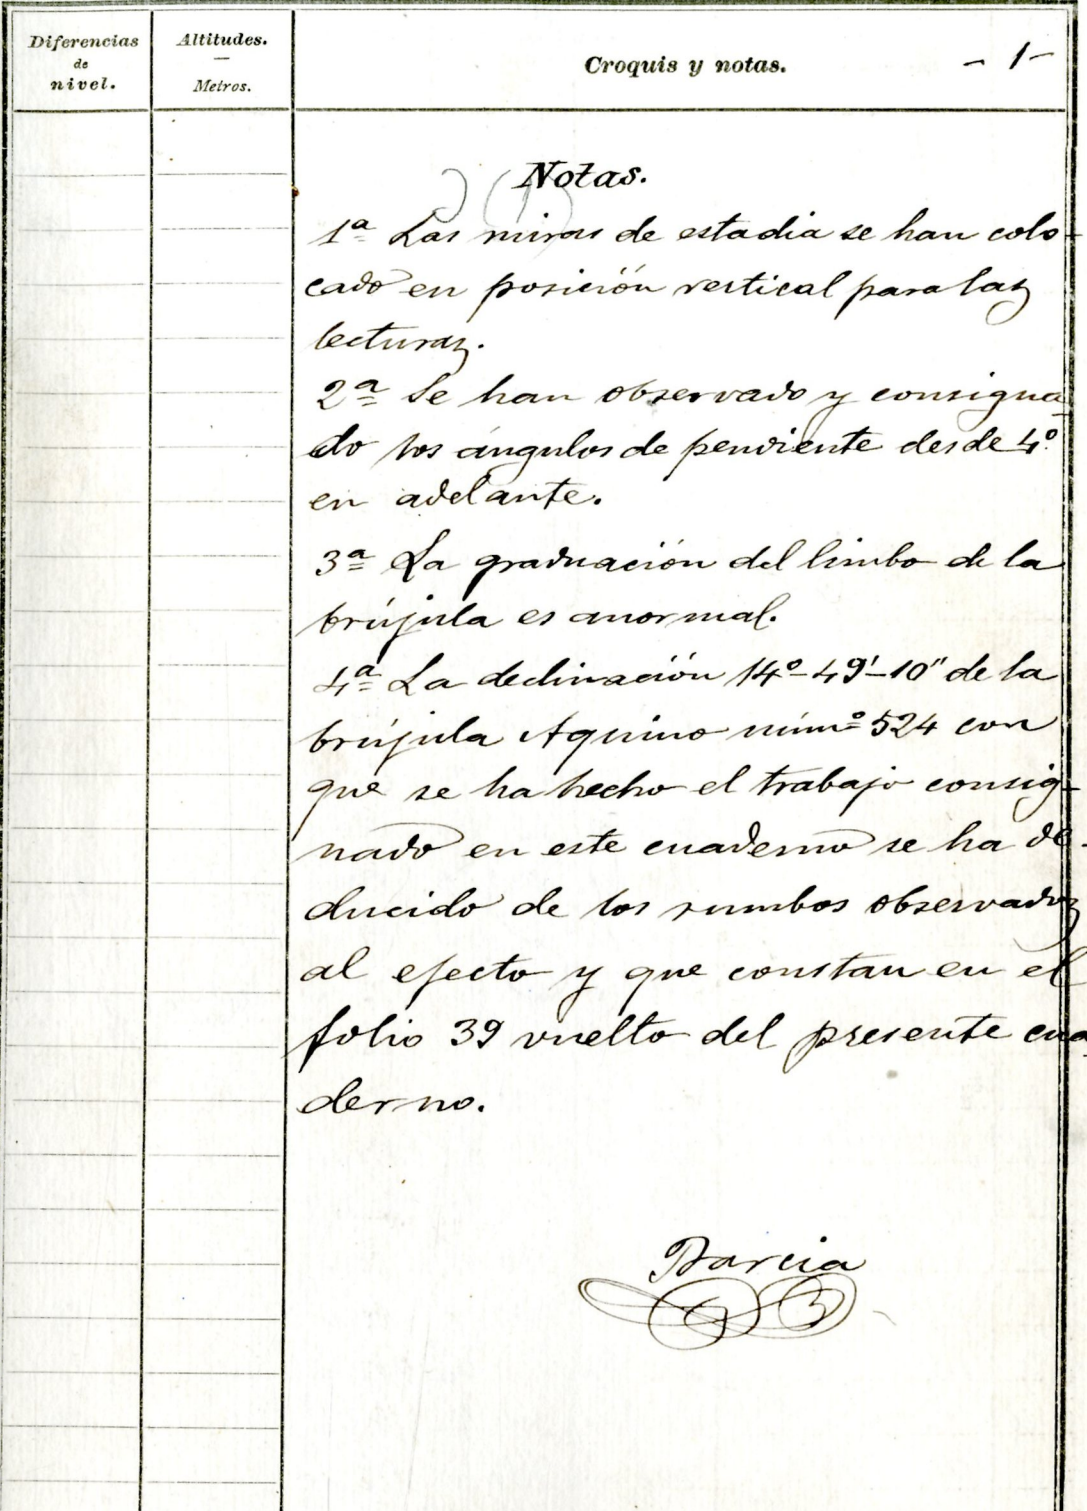 Diferencias
de
nivel.
Altitudes.
Metros.
Croquis y notas.
- 1 -
Notas.
1ª Las miras de estadia se han colo-
cado en posición vertical para las
lecturas.
2ª Se han observado y consigna-
do los ángulos de pendiente desde 4º
en adelante.
3ª La graduación del limbo de la
brújula es anormal.
4ª La declinación 14º-49'-10" de la
brújula Aquino númº 524 con
que se ha hecho el trabajo consig-
nado en este cuaderno se ha de-
ducido de los rumbos observados
al efecto y que constan en el
folio 39 vuelto del presente cua-
derno.
Barcia